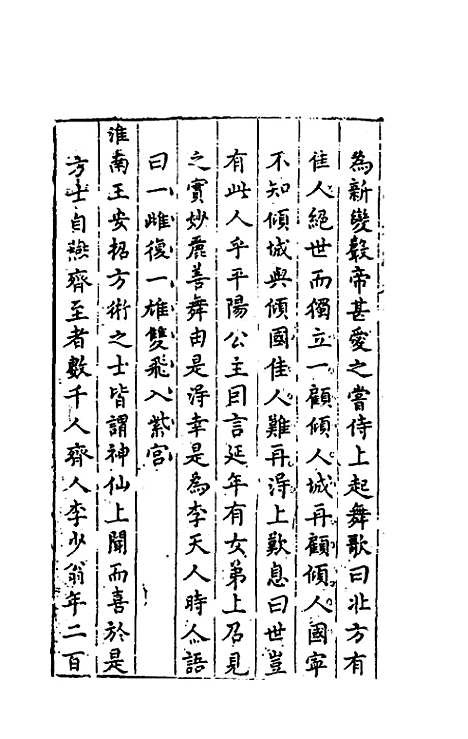 為新變聲帝甚愛之嘗侍上起舞歌曰北方有
佳人絕世而獨立一顧傾人城再顧傾人國寧
不知傾城與傾國佳人難再得上歎息曰世豈
有此人乎平陽公主曰言延年有女弟上乃見
之實妙麗善舞由是得幸是為李夫人時人語
曰一雌復一雄雙飛入紫宮
淮南王安招方術之士皆謂神仙上聞而喜於是
方士自燕齊至者數千人齊人李少翁年二百